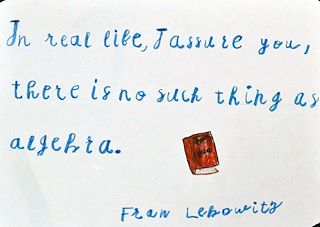 In real life, I assure you,
there is no such thing as
algebra.
Fran Lebowitz